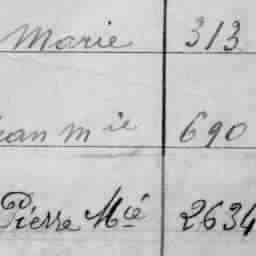 Marie 313
ean mie 690
Pierre Mcé 2634